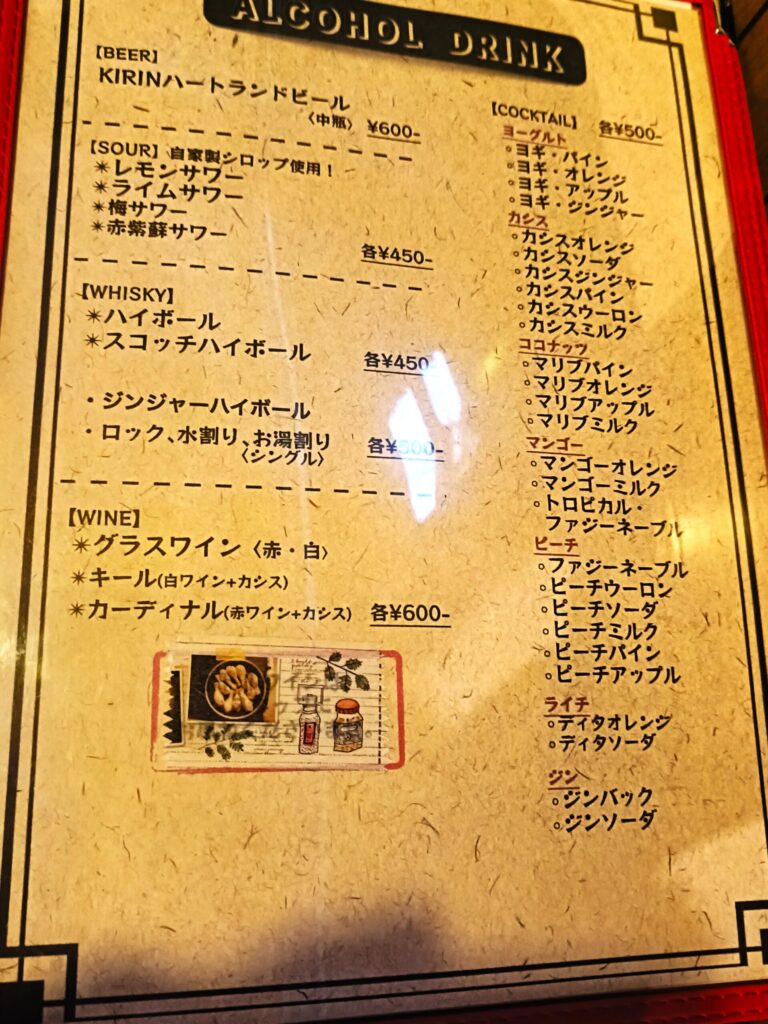 ALCOHOL DRINK
【BEER】
KIRINハートランドビール
〈中瓶〉 ¥600-
【SOUR】自家製シロップ使用！
✴レモンサワー
✴ライムサワー
✴梅サワー
✴赤紫蘇サワー
各¥450-
【WHISKY】
✴ハイボール
✴スコッチハイボール
各¥450-
・ジンジャーハイボール
・ロック、水割り、お湯割り
〈シングル〉
各¥500-
【WINE】
✴グラスワイン〈赤・白〉
✴キール(白ワイン+カシス)
✴カーディナル(赤ワイン+カシス) 各¥600-
【COCKTAIL】 各¥500-
ヨーグルト
○ヨギ・パイン
○ヨギ・オレンジ
○ヨギ・アップル
○ヨギ・ジンジャー
カシス
○カシスオレンジ
○カシスソーダ
○カシスジンジャー
○カシスパイン
○カシスウーロン
○カシスミルク
ココナッツ
○マリブパイン
○マリブオレンジ
○マリブアップル
○マリブミルク
マンゴー
○マンゴーオレンジ
○マンゴーミルク
○トロピカル・
ファジーネーブル
ピーチ
○ファジーネーブル
○ピーチウーロン
○ピーチソーダ
○ピーチミルク
○ピーチパイン
○ピーチアップル
ライチ
○ディタオレンジ
○ディタソーダ
ジン
○ジンバック
○ジンソーダ